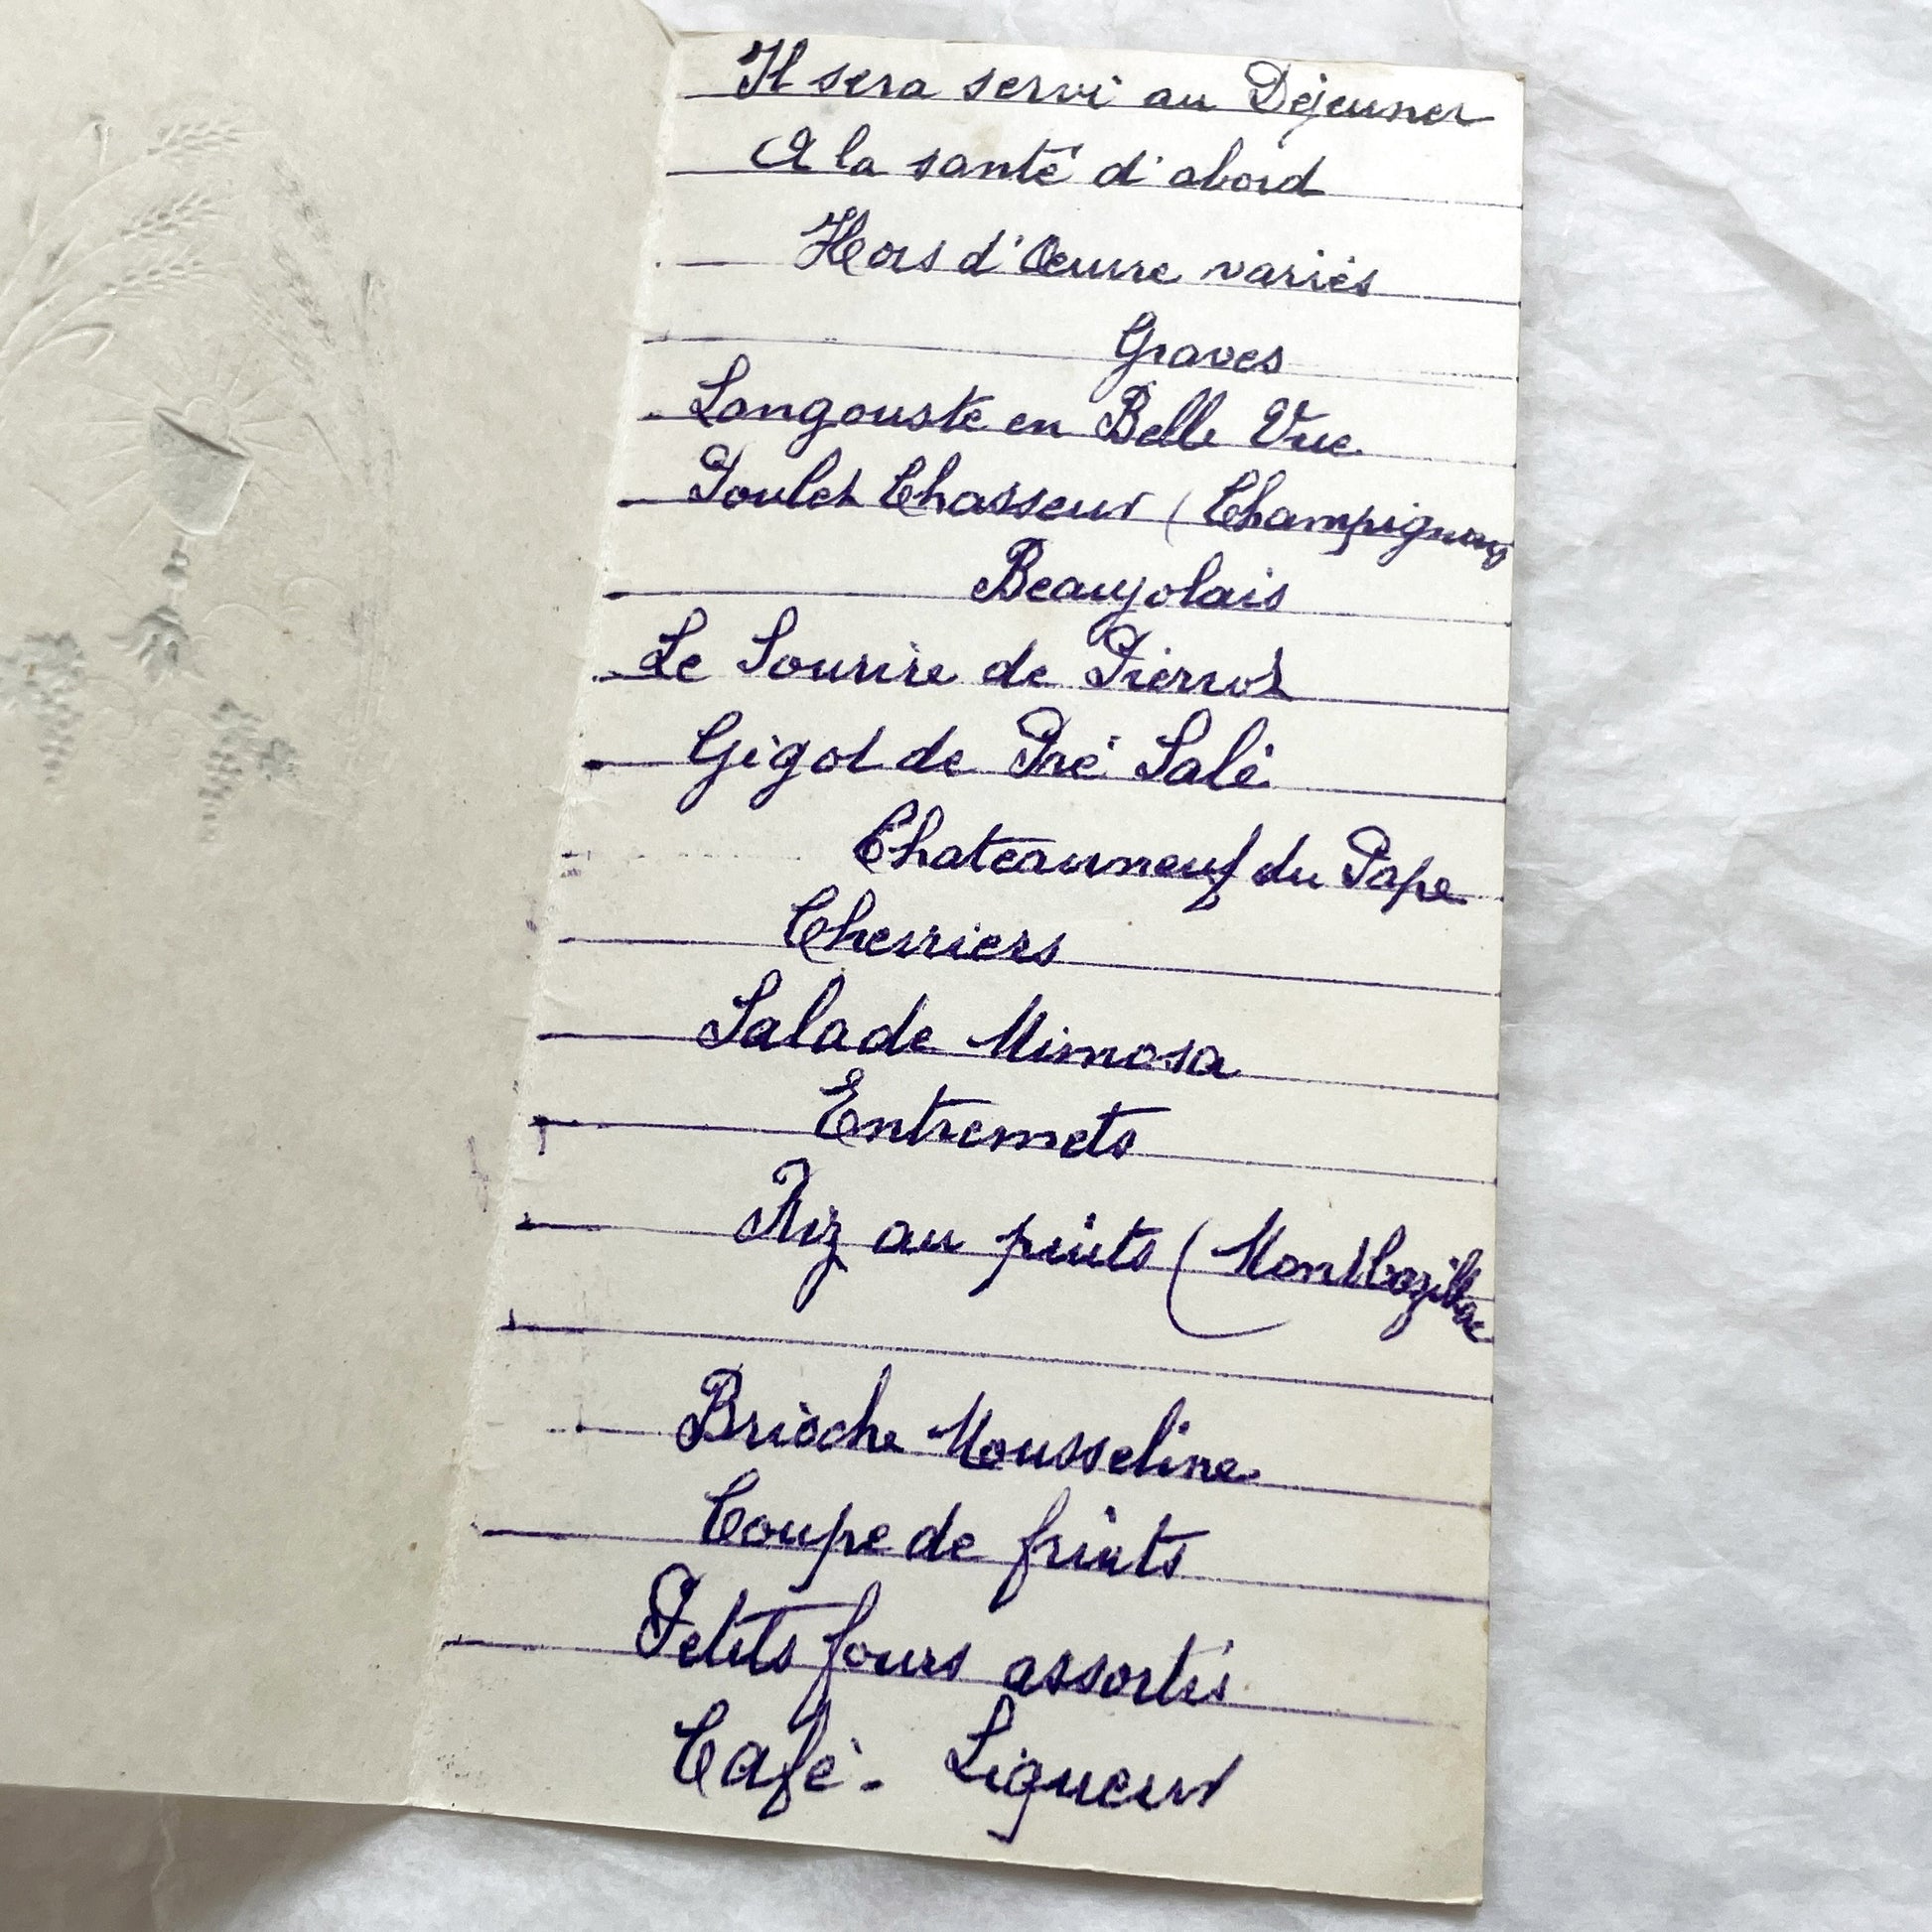 Il sera servi au Déjeuner
A la santé d'abord
Hors d'Œuvre variés
Graves
Langouste en Belle Vue
Poulet Chasseur (Champignons
Beaujolais
Le Sourire de Pierrot
Gigot de Pré Salé
Chateauneuf du Pape
Cherriers
Salade Mimosa
Entremets
Riz au fruits (Montbazillac
Brioche Mousseline
Coupe de fruits
Petits fours assortis
Café - Liqueur